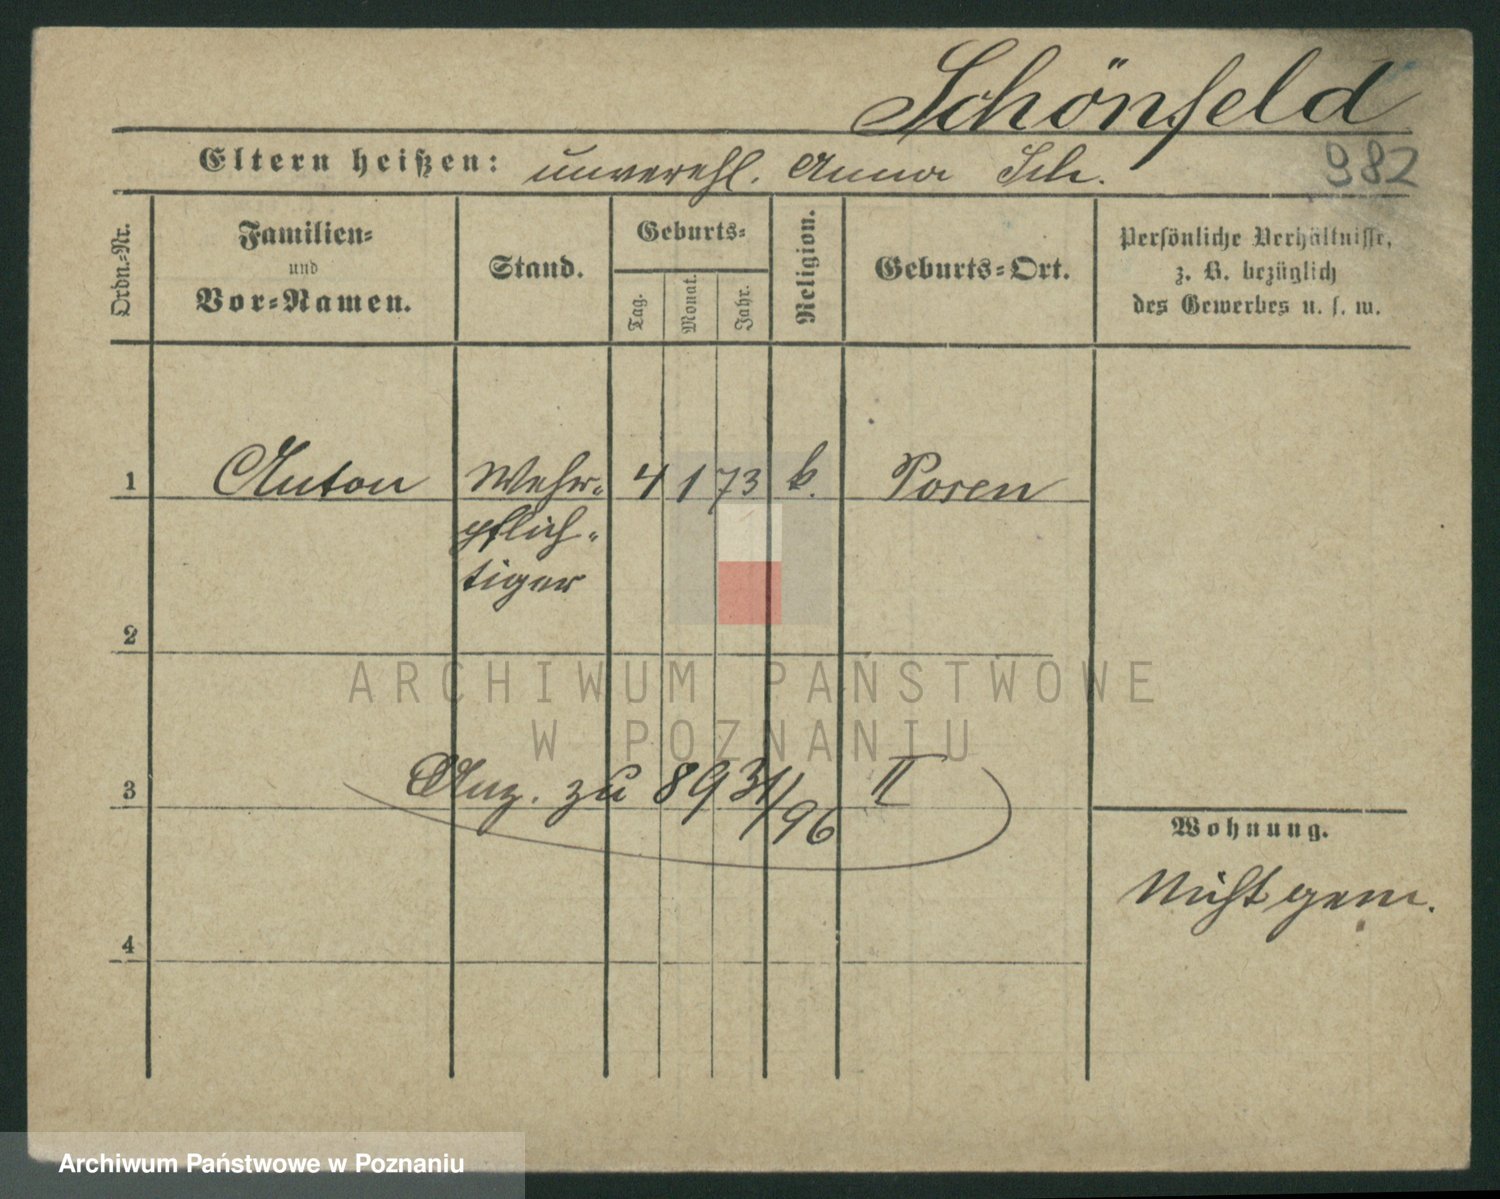 Schönfeld
Eltern heißen: unverehl. Anna Sch.
982
Ordn.-Nr.
Familien-
und
Vor-Namen.
Stand.
Geburts-
Tag.
Monat.
Jahr.
Religion.
Geburts-Ort.
Persönliche Verhältnisse,
z. B. bezüglich
des Gewerbes u. s. w.
1 Anton Wehr- 4 1 73 k. Posen
pflich-
tiger
2
ARCHIWUM PAŃSTWOWE
W POZNANIU
3 Anz. zu 8931/96 II
Wohnung.
Nicht gem.
4
Archiwum Państwowe w Poznaniu